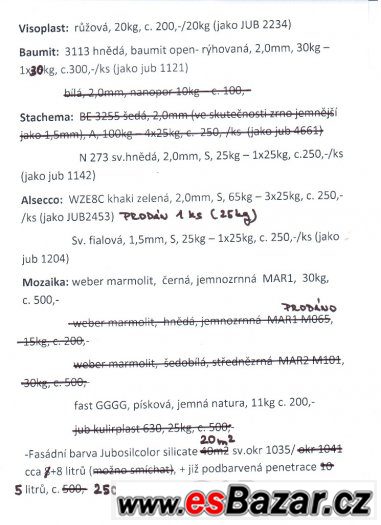 Visoplast: růžová, 20kg, c. 200,-/20kg (jako JUB 2234)
Baumit: 3113 hnědá, baumit open- rýhovaná, 2,0mm, 30kg –
1x30kg, c.300,-/ks (jako jub 1121)
bílá, 2,0mm, nanopor 10kg – c. 100,-
Stachema: BE 3255 šedá, 2,0mm (ve skutečnosti zrno jemnější
jako 1,5mm), A, 100kg – 4x25kg, c. 250, /ks (jako jub 4661)
N 273 sv.hnědá, 2,0mm, S, 25kg – 1x25kg, c.250,-/ks
(jako jub 1142)
Alsecco: WZE8C khaki zelená, 2,0mm, S, 65kg – 3x25kg, c. 250,-
/ks (jako JUB2453) PRODÁN 1 ks (25kg)
Sv. fialová, 1,5mm, S, 25kg – 1x25kg, c. 250,-/ks (jako
jub 1204)
Mozaika: weber marmolit, černá, jemnozrnná MAR1, 30kg,
c. 500,-
PRODÁNO
weber marmolit, hnědá, jemnozrnná MAR1 M065,
15kg, c. 200,-
weber marmolit, šedobílá, střednězrná MAR2 M101,
30kg, c. 500,-
fast GGGG, písková, jemná natura, 11kg c. 200,-
jub kulirplast 630, 25kg, c. 500,-
20m²
-Fasádní barva Jubosilcolor silicate 40m2 sv.okr 1035/ okr 1041
cca +8 litrů (možno smíchat), + již podbarvená penetrace 10
5 litrů, c. 500,- 250
www.esBazar.cz